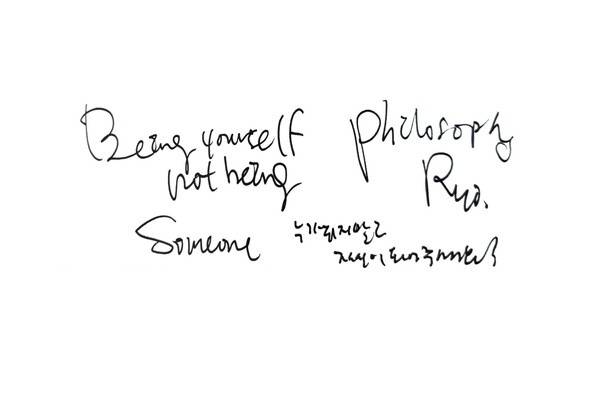 Being yourself
not being
Someone
Philosophy
Ryo.
누가되지말고